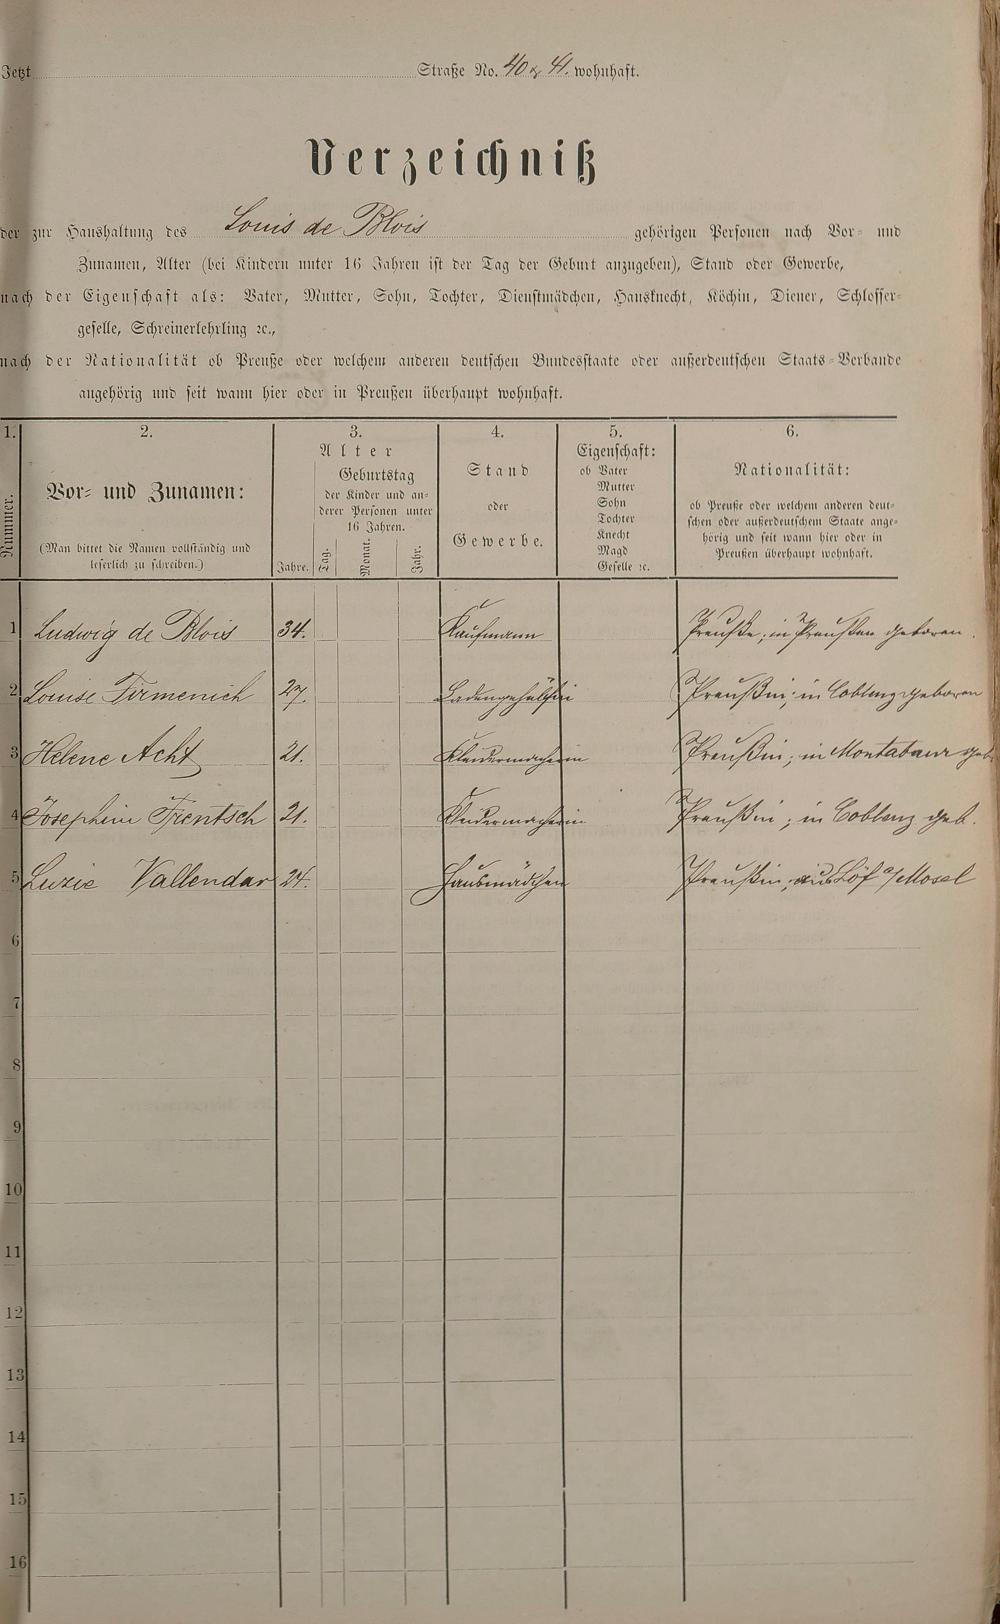 Jetzt Straße No. 40 & 41. wohnhaft.
Verzeichniß
der zur Haushaltung des Louis de Blois gehörigen Personen nach Vor- und
Zunamen, Alter (bei Kindern unter 16 Jahren ist der Tag der Geburt anzugeben), Stand oder Gewerbe,
nach der Eigenschaft als: Vater, Mutter, Sohn, Tochter, Dienstmädchen, Hausknecht, Köchin, Diener, Schlosser-
geselle, Schreinerlehrling ꝛc.,
nach der Nationalität ob Preuße oder welchem anderen deutschen Bundesstaate oder außerdeutschen Staats-Verbande
angehörig und seit wann hier oder in Preußen überhaupt wohnhaft.
1. 2. 3. 4. 5. 6.
Nummer.
Vor- und Zunamen:
(Man bittet die Namen vollständig und
leserlich zu schreiben.)
Alter
Geburtstag
der Kinder und an-
derer Personen unter
16 Jahren.
Jahre. Tag. Monat. Jahr.
Stand
oder
Gewerbe.
Eigenschaft:
ob Vater
Mutter
Sohn
Tochter
Knecht
Magd
Geselle ꝛc.
Nationalität:
ob Preuße oder welchem anderen deut-
schen oder außerdeutschem Staate ange-
hörig und seit wann hier oder in
Preußen überhaupt wohnhaft.
1 Ludwig de Blois 34. Kaufmann Preuße; in Preußen geboren.
2 Louise Firmenich 27. Ladengehülfin Preußin; in Coblenz geboren
3 Helene Acht 21. Kleidermacherin Preußin; in Montabaur geb.
4 Josephine Frentsch 21. Kleidermacherin Preußin; in Coblenz geb.
5 Luzie Vallendar 24. Hausmädchen Preußin; aus Löf a/Mosel
6
7
8
9
10
11
12
13
14
15
16